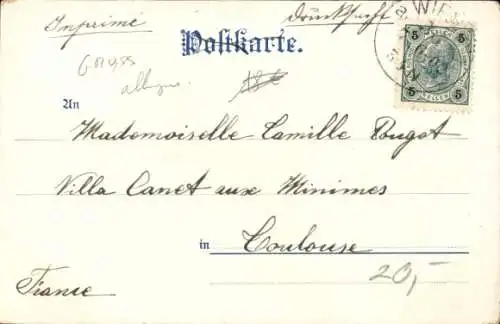 Imprimé
Drucksache
Postkarte.
WIEN
5 5
5 5
HELLER
An
Mademoiselle Camille Pougot
Villa Canet aux Minimes
in Toulouse
France
20,-